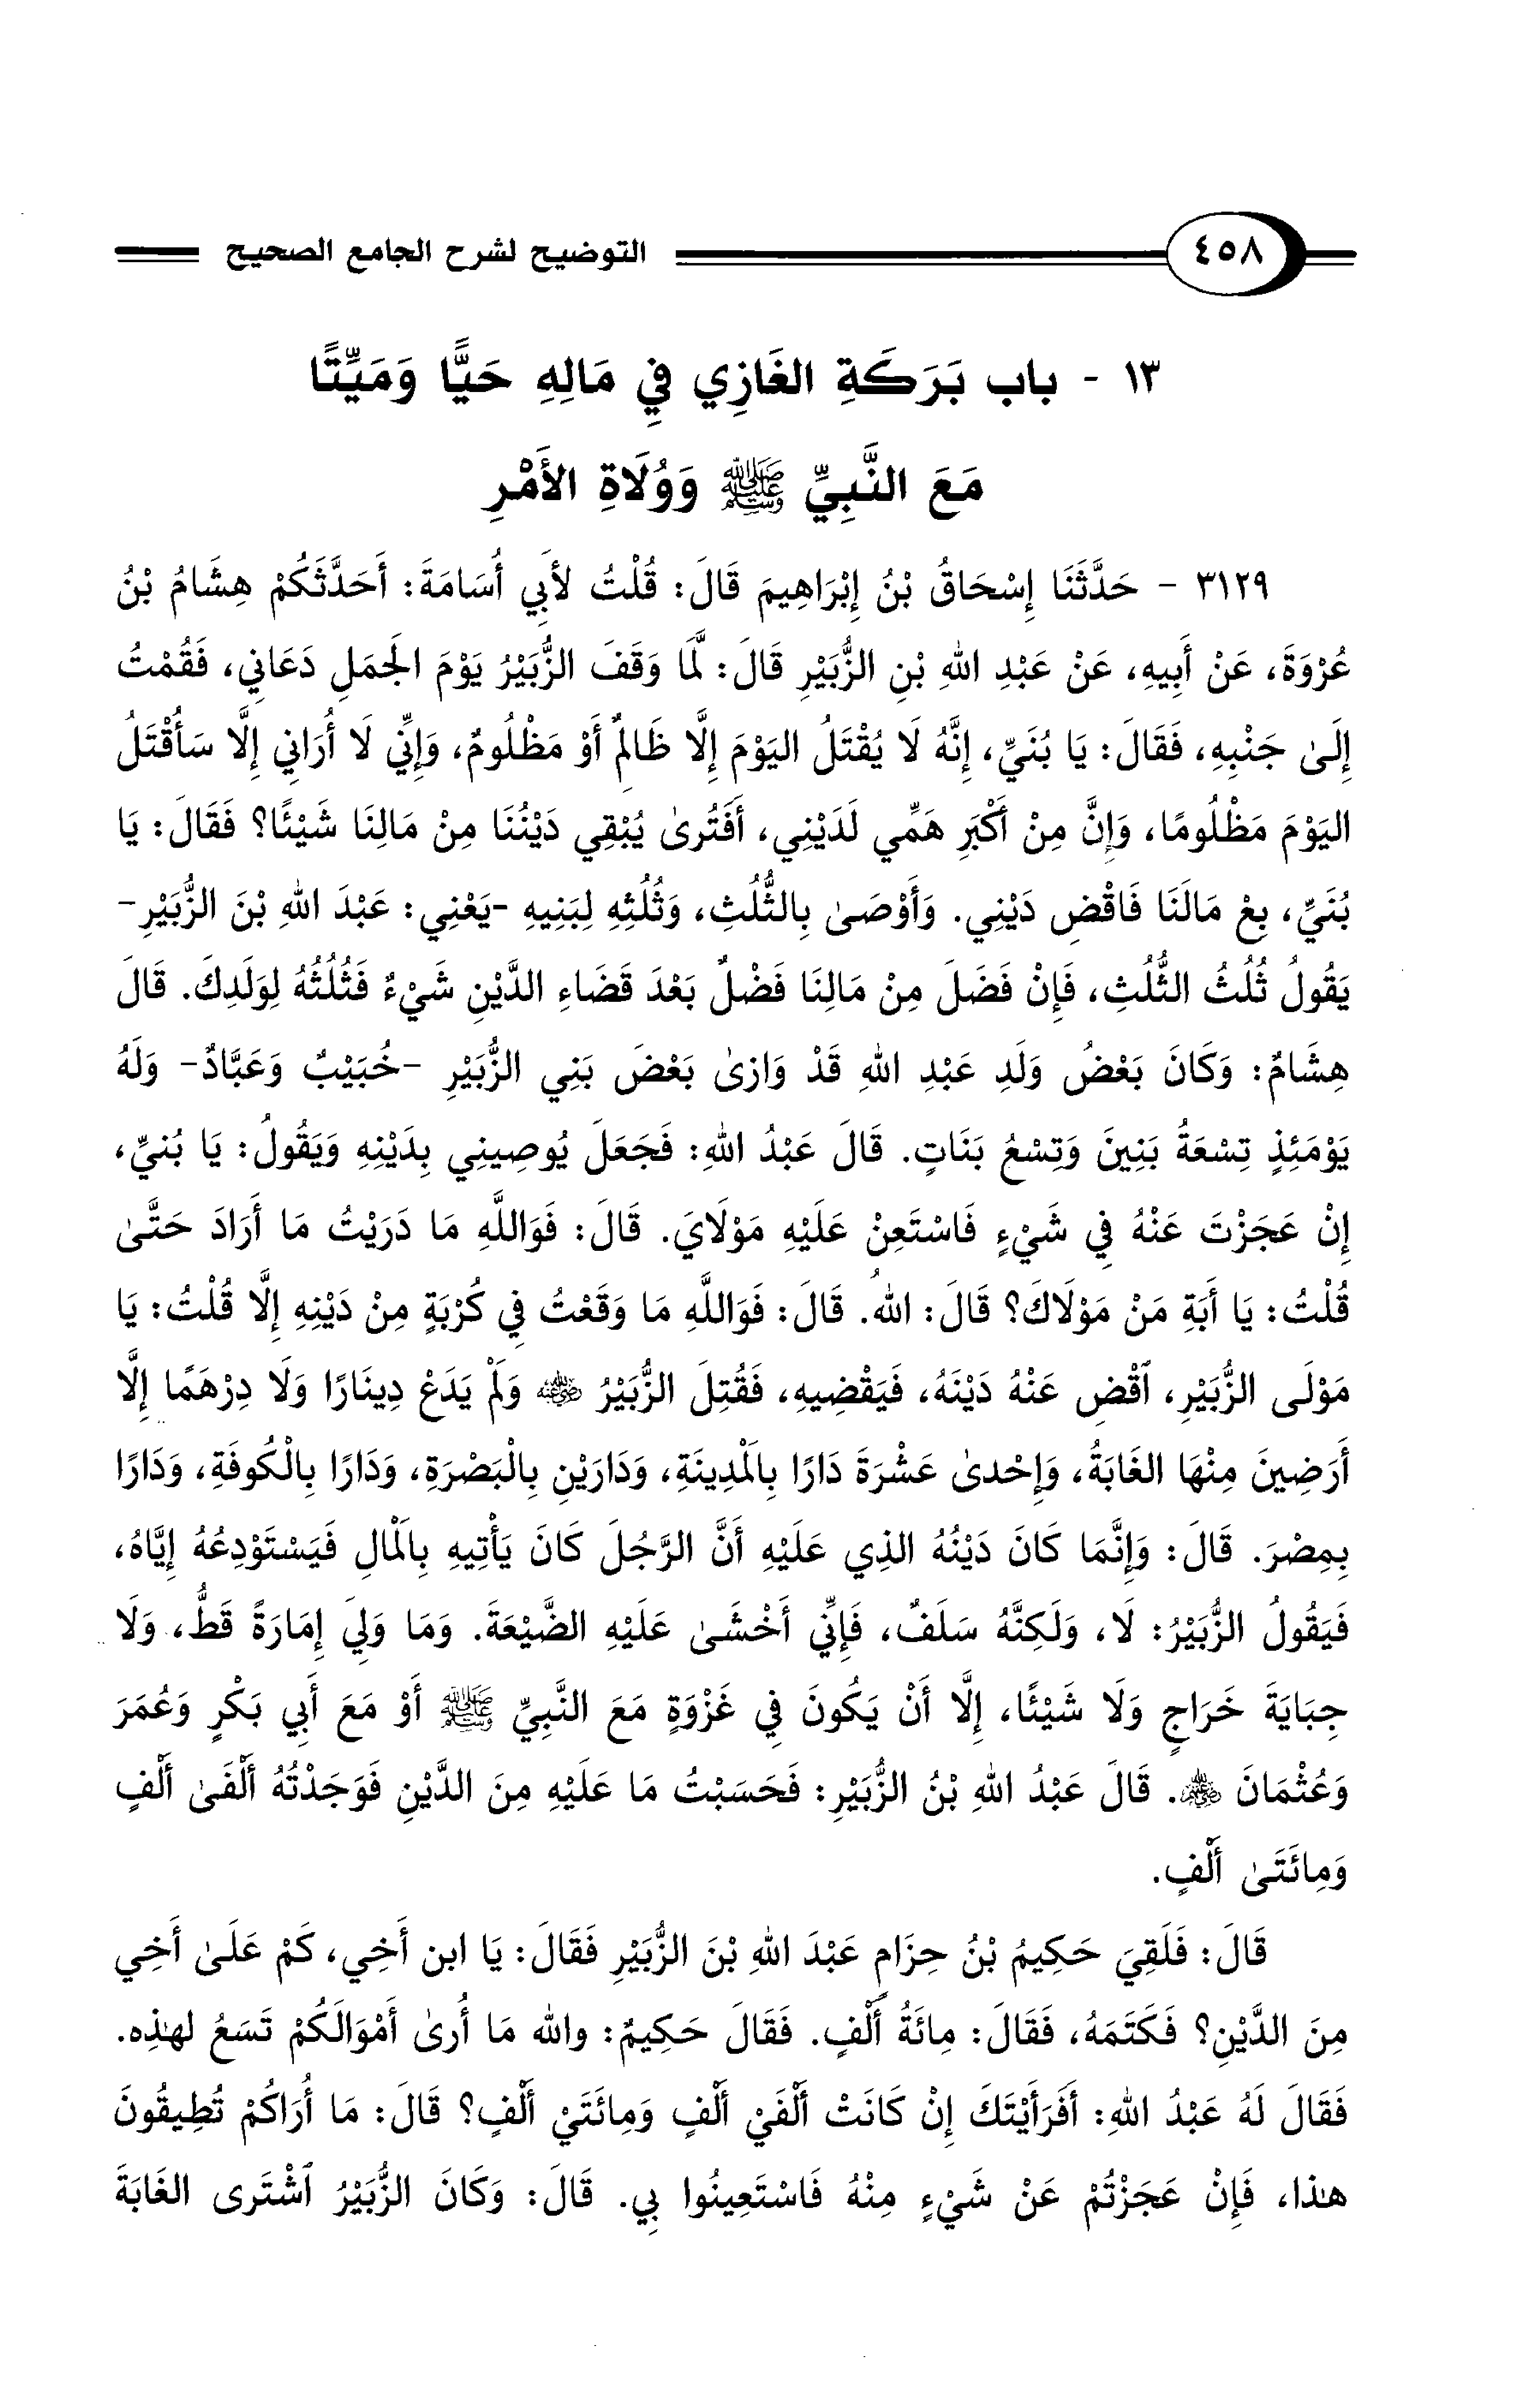 ٤٥٨ التوضيح لشرح الجامع الصحيح
١٣ - باب بَرَكَةِ الغَازِي فِي مَالِهِ حَيًّا وَمَيِّتًا
مَعَ النَّبِيِّ ﷺ وَوُلَاةِ الأَمْرِ
٣١٢٩ - حَدَّثَنَا إِسْحَاقُ بْنُ إِبْرَاهِيمَ قَالَ: قُلْتُ لأَبِي أُسَامَةَ: أَحَدَّثَكُمْ هِشَامُ بْنُ
عُرْوَةَ، عَنْ أَبِيهِ، عَنْ عَبْدِ اللهِ بْنِ الزُّبَيْرِ قَالَ: لَمَّا وَقَفَ الزُّبَيْرُ يَوْمَ الجَمَلِ دَعَانِي، فَقُمْتُ
إِلَىٰ جَنْبِهِ، فَقَالَ: يَا بُنَيِّ، إِنَّهُ لَا يُقْتَلُ اليَوْمَ إِلَّا ظَالِمٌ أَوْ مَظْلُومٌ، وَإِنِّي لَا أُرَانِي إِلَّا سَأُقْتَلُ
اليَوْمَ مَظْلُومًا، وَإِنَّ مِنْ أَكْبَرِ هَمِّي لَدَيْنِي، أَفَتُرىٰ يُبْقِي دَيْنُنَا مِنْ مَالِنَا شَيْئًا؟ فَقَالَ: يَا
بُنَيِّ، بِعْ مَالَنَا فَاقْضِ دَيْنِي. وَأَوْصَىٰ بِالثُّلُثِ، وَثُلُثِهِ لِبَنِيهِ -يَعْنِي: عَبْدَ اللهِ بْنَ الزُّبَيْرِ-
يَقُولُ ثُلُثُ الثُّلُثِ، فَإِنْ فَضَلَ مِنْ مَالِنَا فَضْلٌ بَعْدَ قَضَاءِ الدَّيْنِ شَيْءٌ فَثُلُثُهُ لِوَلَدِكَ. قَالَ
هِشَامٌ: وَكَانَ بَعْضُ وَلَدِ عَبْدِ اللهِ قَدْ وَازىٰ بَعْضَ بَنِي الزُّبَيْرِ -خُبَيْبٌ وَعَبَّادٌ- وَلَهُ
يَوْمَئِذٍ تِسْعَةُ بَنِينَ وَتِسْعُ بَنَاتٍ. قَالَ عَبْدُ اللهِ: فَجَعَلَ يُوصِينِي بِدَيْنِهِ وَيَقُولُ: يَا بُنيِّ،
إِنْ عَجَزْتَ عَنْهُ فِي شَيْءٍ فَاسْتَعِنْ عَلَيْهِ مَوْلَايَ. قَالَ: فَوَاللَّهِ مَا دَرَيْتُ مَا أَرَادَ حَتَّىٰ
قُلْتُ: يَا أَبَةِ مَنْ مَوْلَاكَ؟ قَالَ: اللهُ. قَالَ: فَوَاللَّهِ مَا وَقَعْتُ فِي كُرْبَةٍ مِنْ دَيْنِهِ إِلَّا قُلْتُ: يَا
مَوْلَى الزُّبَيْرِ، ٱقْضِ عَنْهُ دَيْنَهُ، فَيَقْضِيهِ، فَقُتِلَ الزُّبَيْرُ رضي الله عنه وَلَمْ يَدَعْ دِينَارًا وَلَا دِرْهَمًا إِلَّا
أَرَضِينَ مِنْهَا الغَابَةُ، وَإِحْدىٰ عَشْرَةَ دَارًا بِالَمْدِينَةِ، وَدَارَيْنِ بِالْبَصْرَةِ، وَدَارًا بِالْكُوفَةِ، وَدَارًا
بِمِصْرَ. قَالَ: وَإِنَّمَا كَانَ دَيْنُهُ الذِي عَلَيْهِ أَنَّ الرَّجُلَ كَانَ يَأْتِيهِ بِالَمْالِ فَيَسْتَوْدِعُهُ إِيَّاهُ،
فَيَقُولُ الزُّبَيْرُ: لَا، وَلَكِنَّهُ سَلَفٌ، فَإِنِّي أَخْشَىٰ عَلَيْهِ الضَّيْعَةَ. وَمَا وَلِيَ إِمَارَةً قَطُّ، وَلَا
جِبَايَةَ خَرَاجٍ وَلَا شَيْئًا، إِلَّا أَنْ يَكُونَ فِي غَزْوَةٍ مَعَ النَّبِيِّ ﷺ أَوْ مَعَ أَبِي بَكْرٍ وَعُمَرَ
وَعُثْمَانَ رضي الله عنهم. قَالَ عَبْدُ اللهِ بْنُ الزُّبَيْرِ: فَحَسَبْتُ مَا عَلَيْهِ مِنَ الدَّيْنِ فَوَجَدْتُهُ أَلْفَىٰ أَلْفٍ
وَمِائَتَىٰ أَلْفٍ.
قَالَ: فَلَقِيَ حَكِيمُ بْنُ حِزَامٍ عَبْدَ اللهِ بْنَ الزُّبَيْرِ فَقَالَ: يَا ابن أَخِي، كَمْ عَلَىٰ أَخِي
مِنَ الدَّيْنِ؟ فَكَتَمَهُ، فَقَالَ: مِائَةُ أَلْفٍ. فَقَالَ حَكِيمٌ: والله مَا أُرىٰ أَمْوَالَكُمْ تَسَعُ لهٰذِه.
فَقَالَ لَهُ عَبْدُ اللهِ: أَفَرَأَيْتَكَ إِنْ كَانَتْ أَلْفَيْ أَلْفٍ وَمِائَتَيْ أَلْفٍ؟ قَالَ: مَا أُرَاكُمْ تُطِيقُونَ
هٰذا، فَإِنْ عَجَزْتُمْ عَنْ شَيْءٍ مِنْهُ فَاسْتَعِينُوا بِي. قَالَ: وَكَانَ الزُّبَيْرُ ٱشْتَرى الغَابَةَ